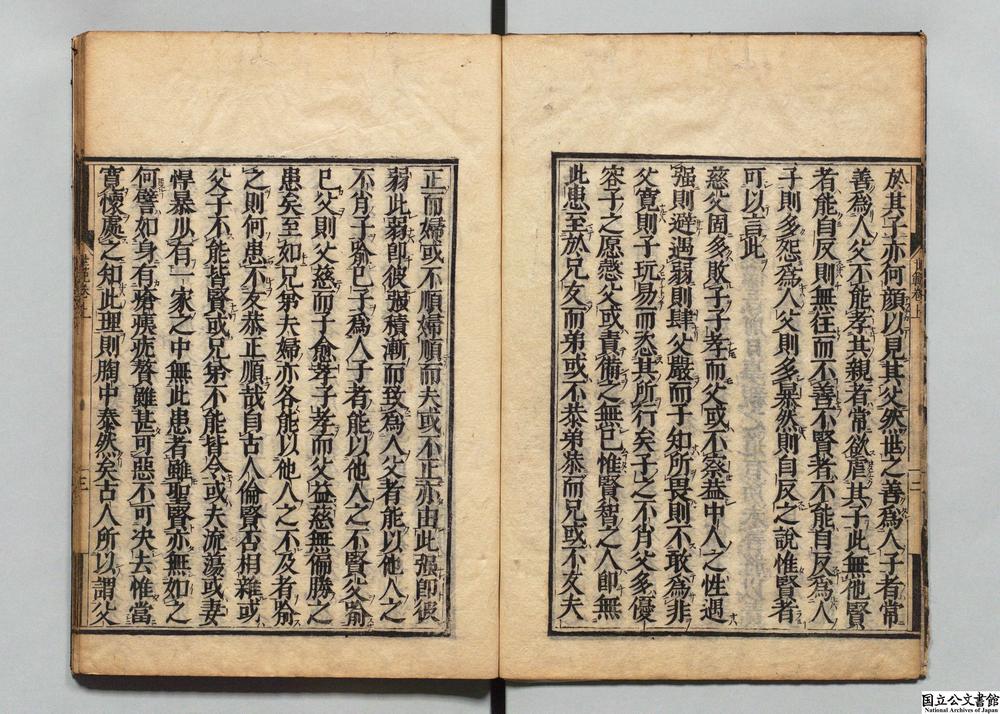 於其子亦何顔以見其父然世之善為人子者常
善為人父不能孝其親者常欲虐其子此無他賢
者能自反則無往而不善不賢者不能自反為人
子則多怨為人父則多暴然則自反之說惟賢者
可以言此
慈父固多敗子子孝而父或不察蓋中人之性遇
强則避遇弱則肆父嚴而子知所畏則不敢為非
父寛則子玩易而恣其所行矣子之不肖父多優
容子之愿愨父或責備之無已惟賢智之人即無
此患至於兄友而弟或不恭弟恭而兄或不友夫
正而婦或不順婦順而夫或不正亦由此强即彼
弱此弱即彼强積漸而致為人父者能以他人之
不肖子喩己子為人子者能以他人之不賢父喩
己父則父慈而子愈孝子孝而父益慈無偏勝之
患矣至如兄弟夫婦亦各能以他人之不及者喩
之則何患不友恭正順哉自古人倫賢否相雜或
父子不能皆賢或兄弟不能皆令或夫流蕩或妻
悍暴少有一家之中無此患者雖聖賢亦無如之
何譬如身有瘡痍疣贅雖甚可惡不可决去惟當
寛懷處之知此理則胸中泰然矣古人所以謂父
世範卷上
二
三
国立公文書館
National Archives of Japan